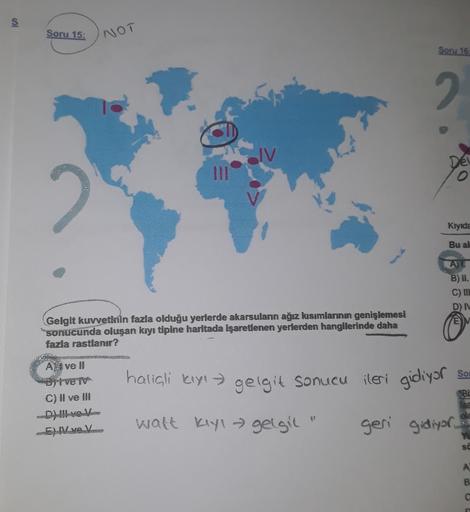 S
Soru 15:
NOT
Soru 16
?
I
II
III
IV
V
?
Gelgit kuvvetinin fazla olduğu yerlerde akarsuların ağız kısımlarının genişlemesi
sonucunda oluşan kıyı tipine haritada işaretlenen yerlerden hangilerinde daha
fazla rastlanır?
A) I ve II
B) I ve IV
C) II ve III
D) III ve V
E) IV ve V
haliçli kıyı → gelgit sonucu ileri gidiyor
watt kıyı → gelgit " geri gidiyor
Kıyıda
Bu al
B) II.
C) III
D) IV
A
B
C